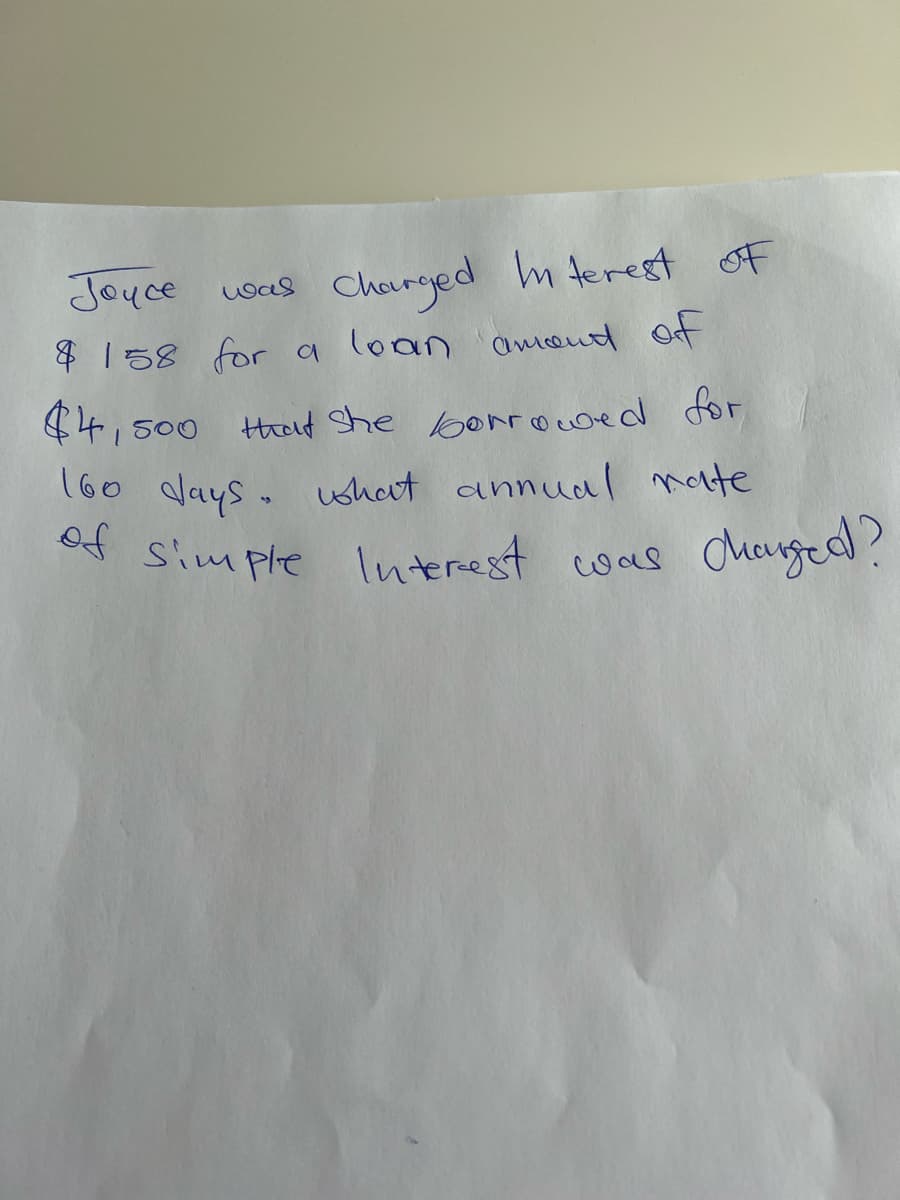 Joyce was charged Interest of
$158 for a loan amount of
$4,500 that she borrowed for
160 days. what annual rate
of simple Interest was charged?